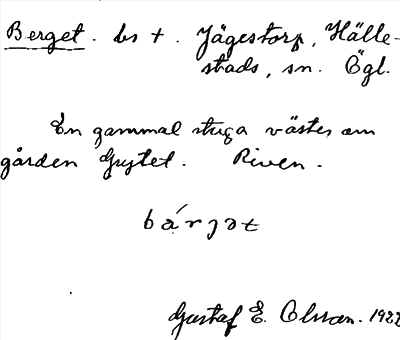 Berget. bs +. Jägestorp, Hälle-
stads, sn. Ögl.
En gammal stuga väster om
gården Grytet. Riven.
bárjət
Gustaf E. Olsson. 1922